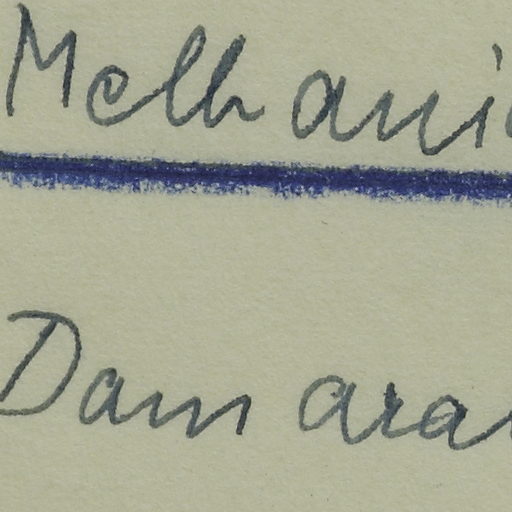 Melhani
Damara